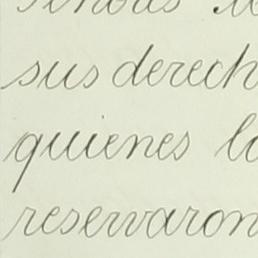 sus derech
quienes lo
reservaron